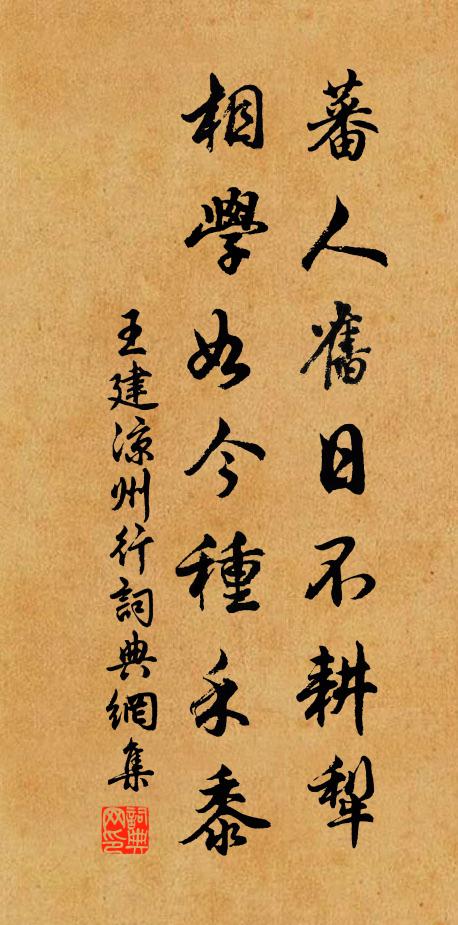 蕃人舊日不耕犁
相學如今種禾黍
王建涼州行詞典網集
詞典网印